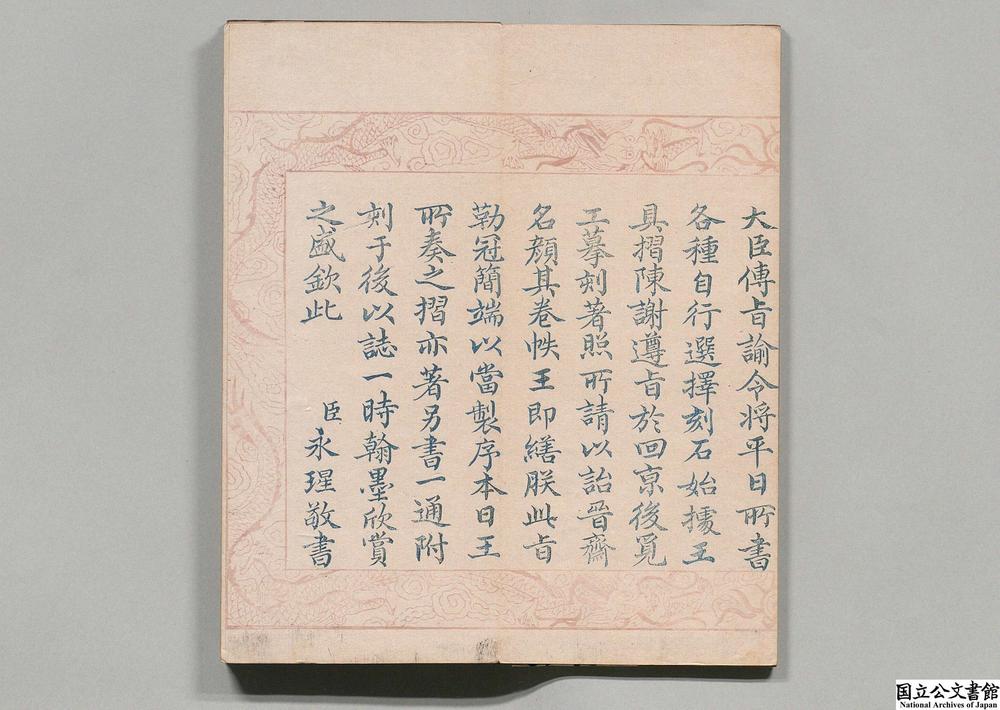 大臣傳旨諭令将平日所書
各種自行選擇刻石始據王
具摺陳謝遵旨於回京後覓
工摹刻著照所請以詒晉齋
名顔其卷帙王即繕朕此旨
勒冠簡端以當製序本日王
所奏之摺亦著另書一通附
刻于後以誌一時翰墨欣賞
之盛欽此
臣永瑆敬書
国立公文書館
National Archives of Japan